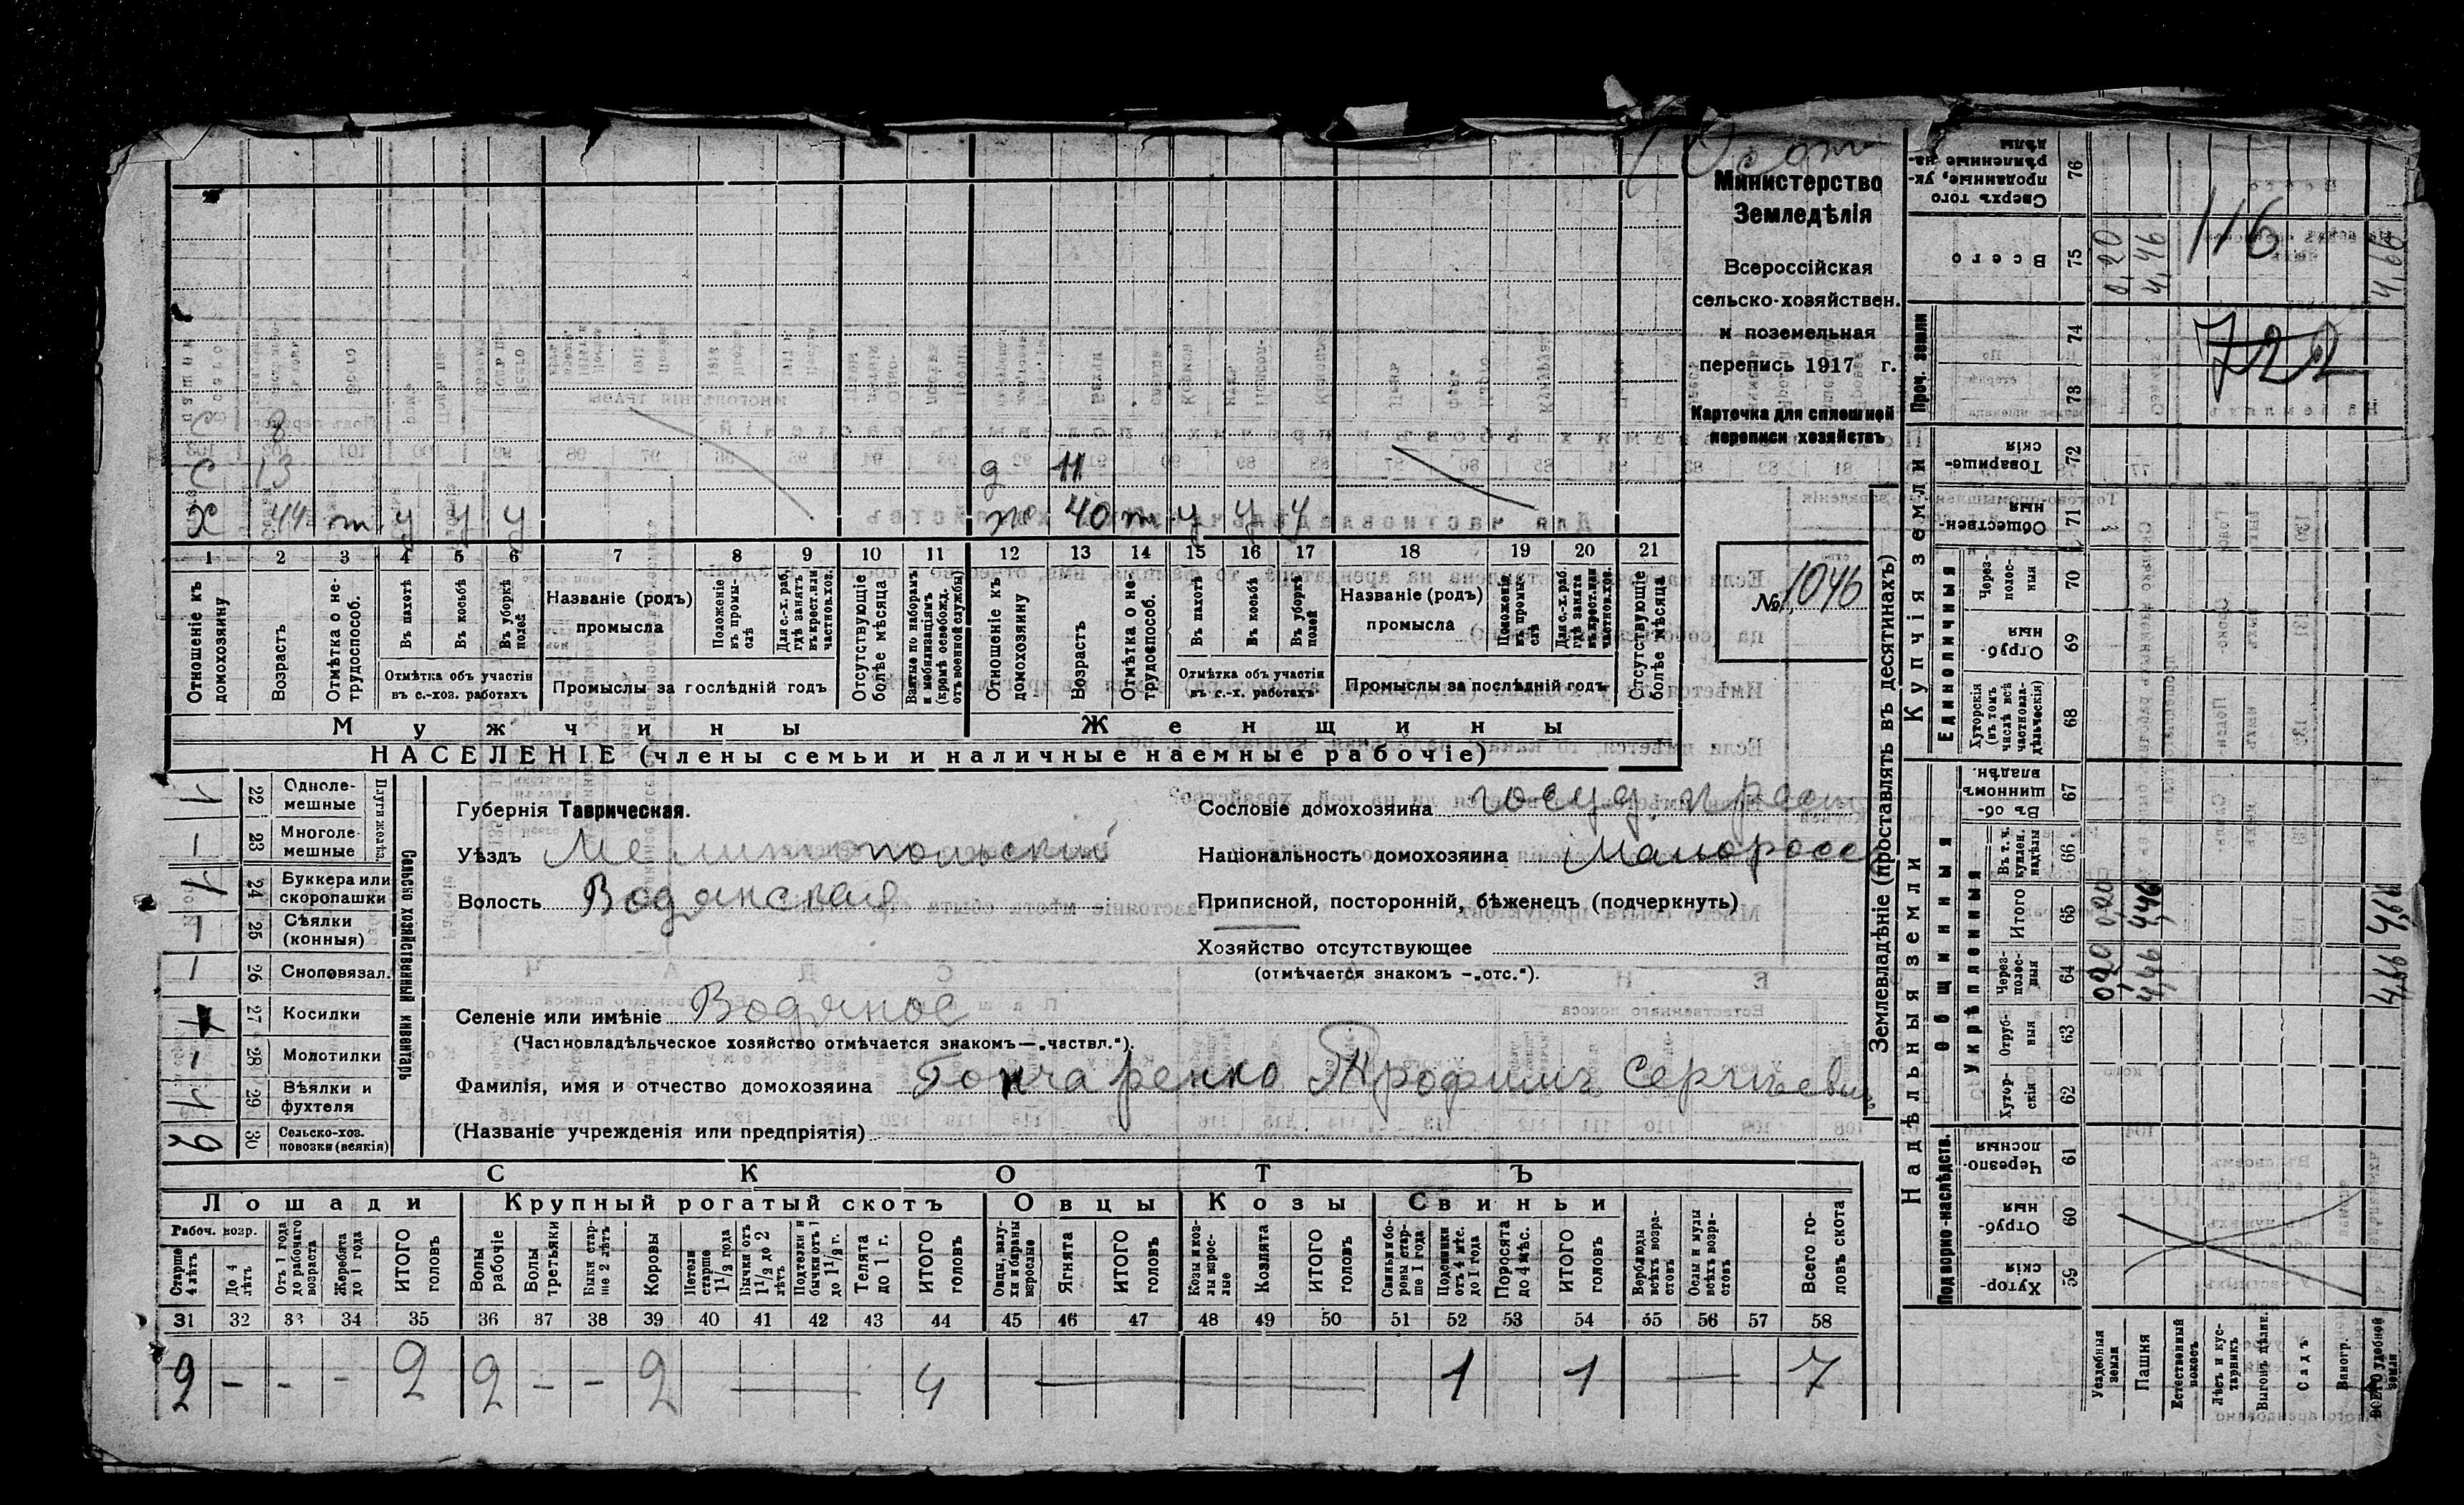 Министерство
Земледѣлія
Всероссійская
сельско-хозяйствен.
и поземельная
перепись 1917 г.
Карточка для сплошной
переписи хозяйствъ
№ 1046
116
722
С 8
С 13 д 11
Х 44 т у у у ж 40 т у у у
1 2 3 4 5 6 7 8 9 10 11 12 13 14 15 16 17 18 19 20 21
Отношеніе къ домохозяину
Возрастъ
Отмѣтка о не-трудоспособ.
Въ пахотѣ
Въ косьбѣ
Въ уборкѣ полей
Отмѣтка объ участіи въ с.-хоз. работахъ
Названіе (родъ) промысла
Положеніе въ промы-слѣ
Для с.-х. раб. гдѣ занятъ въ крест. или частнов. хоз.
Промыслы за послѣдній годъ
Отсутствующіе болѣе мѣсяца
Взятые по наборамъ и мобилизаціямъ (кромѣ освобожд. отъ военной службы)
Отношеніе къ домохозяину
Возрастъ
Отмѣтка о не-трудоспособ.
Въ пахотѣ
Въ косьбѣ
Въ уборкѣ полей
Отмѣтка объ участіи въ с.-х. работахъ
Названіе (родъ) промысла
Положеніе въ промы-слѣ
Для с.-х. раб. гдѣ занята въ крест. или частнов. хоз.
Промыслы за послѣдній годъ
Отсутствующіе болѣе мѣсяца
Мужчины Женщины
НАСЕЛЕНІЕ (члены семьи и наличные наемные рабочіе)
Сельско хозяйственный инвентарь
Одноле-мешные 22 1
Многоле-мешные 23 –
Буккера или скоропашки 24 1
Сѣялки (конныя) 25 –
Сноповязал. 26 –
Косилки 27
Молотилки 28 –
Вѣялки и фухтеля 29 1
Сельско-хоз. повозки (всякія) 30 2
Губернія Таврическая.
Уѣздъ Мелитопольскій
Волость Водянская
Сословіе домохозяина госуд. крест
Національность домохозяина Малоросс
Приписной, посторонній, бѣженецъ (подчеркнуть)
Хозяйство отсутствующее
(отмѣчается знакомъ –„отс.“).
Селеніе или имѣніе Водяное
(Частновладѣльческое хозяйство отмѣчается знакомъ—„частвл.“).
Фамилія, имя и отчество домохозяина Гончаренко Трофимъ Сергѣевич
(Названіе учрежденія или предпріятія)
СКОТЪ
Лошади Крупный рогатый скотъ Овцы Козы Свиньи
Рабоч. возр.
Старше 4 лѣтъ
До 4 лѣтъ
Отъ 1 года до рабочаго возраста
Жеребята до 1 года
ИТОГО головъ
Волы рабочіе
Волы третьяки
Быки стар-ше 2 лѣтъ
Коровы
Нетели старше 1 1/2 года
Бычки отъ 1 1/2 до 2 лѣтъ
Подтелки и бычки отъ 1 до 1 1/2 г.
Телята до 1 г.
ИТОГО головъ
Овцы, валу-хи и бараны взрослые
Ягнята
ИТОГО головъ
Козы и коз-лы взрос-лые
Козлята
ИТОГО головъ
Свиньи и бо-ровы стар-ше 1 года
Подсвинки отъ 4 мѣс. до 1 года
Поросята до 4 мѣс.
ИТОГО головъ
Верблюды всѣхъ возра-стовъ
Ослы и мулы всѣхъ возра-стовъ
Всего го-ловъ скота
31 32 33 34 35 36 37 38 39 40 41 42 43 44 45 46 47 48 49 50 51 52 53 54 55 56 57 58
2 – – – 2 2 – – 2 — 4 — 1 1 — 7
Землевладѣніе (проставлять въ десятинахъ)
Надѣльныя земли Купчія земли Проч. земли
Подворно-наслѣдств. Общинныя Укрѣпленныя Единоличныя
Хутор-скія 59
Отруб-ныя 60
Черезпо-лосныя 61
Хутор-скія 62
Отруб-ныя 63
Через-полос-ныя 64 0,20 4,46 4,66
Итого 65 0,20 4,46 4,66
Въ т. ч. куплен. надѣлы 66
Въ об-щинномъ владѣн. 67
Хуторскія (въ томъ числѣ всѣ частновла-дѣльческія) 68
Отруб-ныя 69
Через-полос-ныя 70
Обществен-ныя 71
Товарище-скія 72
73
74
Всего 75 0,20 4,46 4,66
Сверхъ того проданные, ук-рѣпленные на-дѣлы 76
Усадебныя земли
Пашня
Естественный покосъ
Лѣсъ и кус-тарникъ
Выгонъ цѣлин.
Садъ
Виногр.
ВСЕГО удобной земли